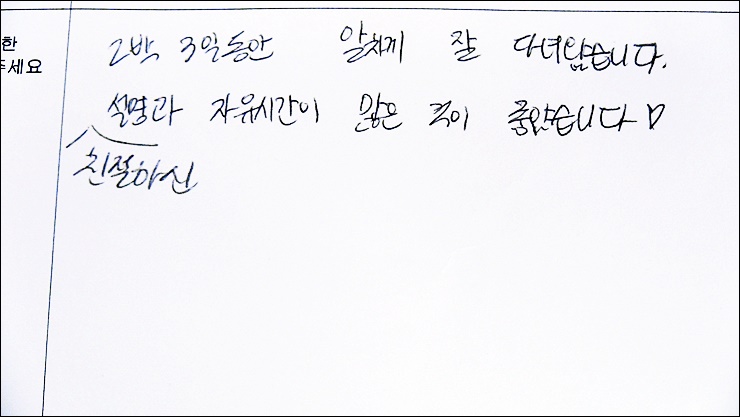 한
주세요
2박 3일동안 알차게 잘 다녀왔습니다.
설명과 자유시간이 많은 것이 좋았습니다♡
친절하신